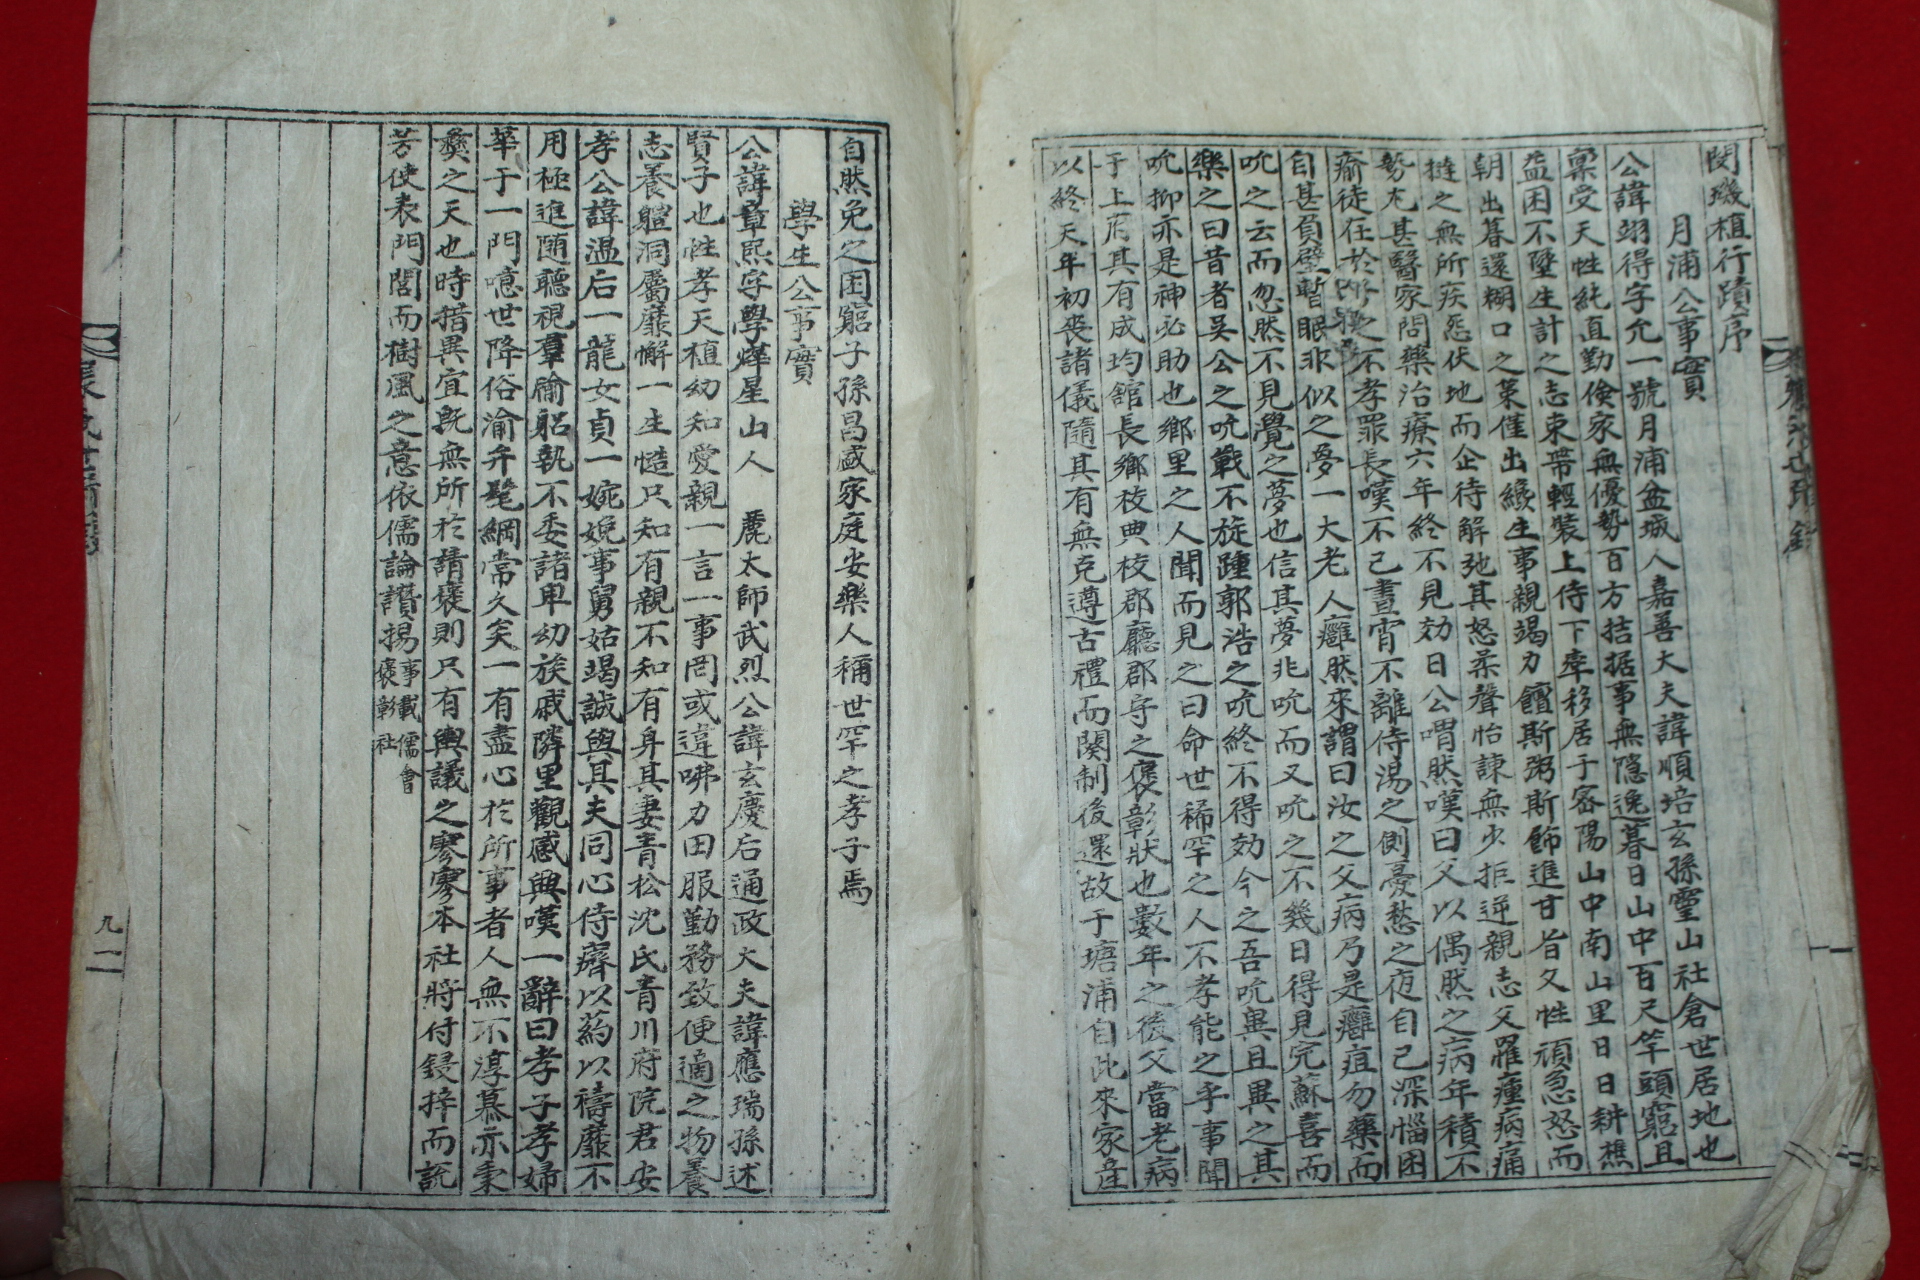 閔璣植行蹟序
月浦公事實
公諱翊得字允一號月浦盆城人嘉善大夫諱順培玄孫靈山社倉世居地也
稟受天性純直勤儉家無優勢百方拮据事無隱逸暮日山中百尺竿頭窮且
益困不墜生計之志束帶輕裝上侍下率移居于密陽山中南山里日日耕樵
朝出暮還糊口之策僅出纔生事親竭力饘斯粥斯飾進甘旨父性頑急怒而
撻之無所疾怨伏地而企待解弛其怒柔聲怡諫無少拒逆親志父罹瘇病痛
勢尤甚醫家問藥治療六年終不見効日公喟然嘆曰父以偶然之病年積不
瘉徒在於之不孝罪長嘆不已晝宵不離侍湯之側憂愁之夜自已深惱困
自甚負壁暫眠非似之夢一大老人癯然來謂曰汝之父病乃是癰疽勿藥而
吮之云而忽然不見覺之夢也信其夢兆吮而又吮之不幾日得見完蘇喜而
樂之曰昔者吳公之吮戰不旋踵郭浩之吮終不得効今之吾吮異且異之其
吮抑亦是神必助也鄉里之人聞而見之曰命世稀罕之人不孝能之乎事聞
于上府其有成均館長鄉校典校郡廳郡守之褒彰狀也數年之後父當老病
以終天年初喪諸儀隨其有無克遵古禮而闋制後還故于塘浦自此來家産
自然免之困窮子孫昌盛家庭安樂人稱世罕之孝子焉
學生公事實
公諱章熙字學燁星山人 麗太師武烈公諱玄慶后通政大夫諱應瑞孫述
賢子也性孝天植幼知愛親一言一事罔或違咈力田服勤務致便適之物養
志養軆洞屬靡懈一生慥只知有親不知有身其妻青松沈氏青川府院君安
孝公諱温后一龍女貞一婉娩事舅姑竭誠與其夫同心侍癠以葯以禱靡不
用極進随聽視羣褕躬執不委諸卑幼族戚隣里觀感興嘆一辭曰孝子孝婦
華于一門噫世降俗渝弁髦綱常久矣一有盡心於所事者人無不淳慕亦秉
彝之天也時措異宜旣無所於請褒則只有輿議之寥寥本社將付鋟梓而訧
芳使表門閭而樹風之意依儒論讚揚事載儒會褒彰社
九一